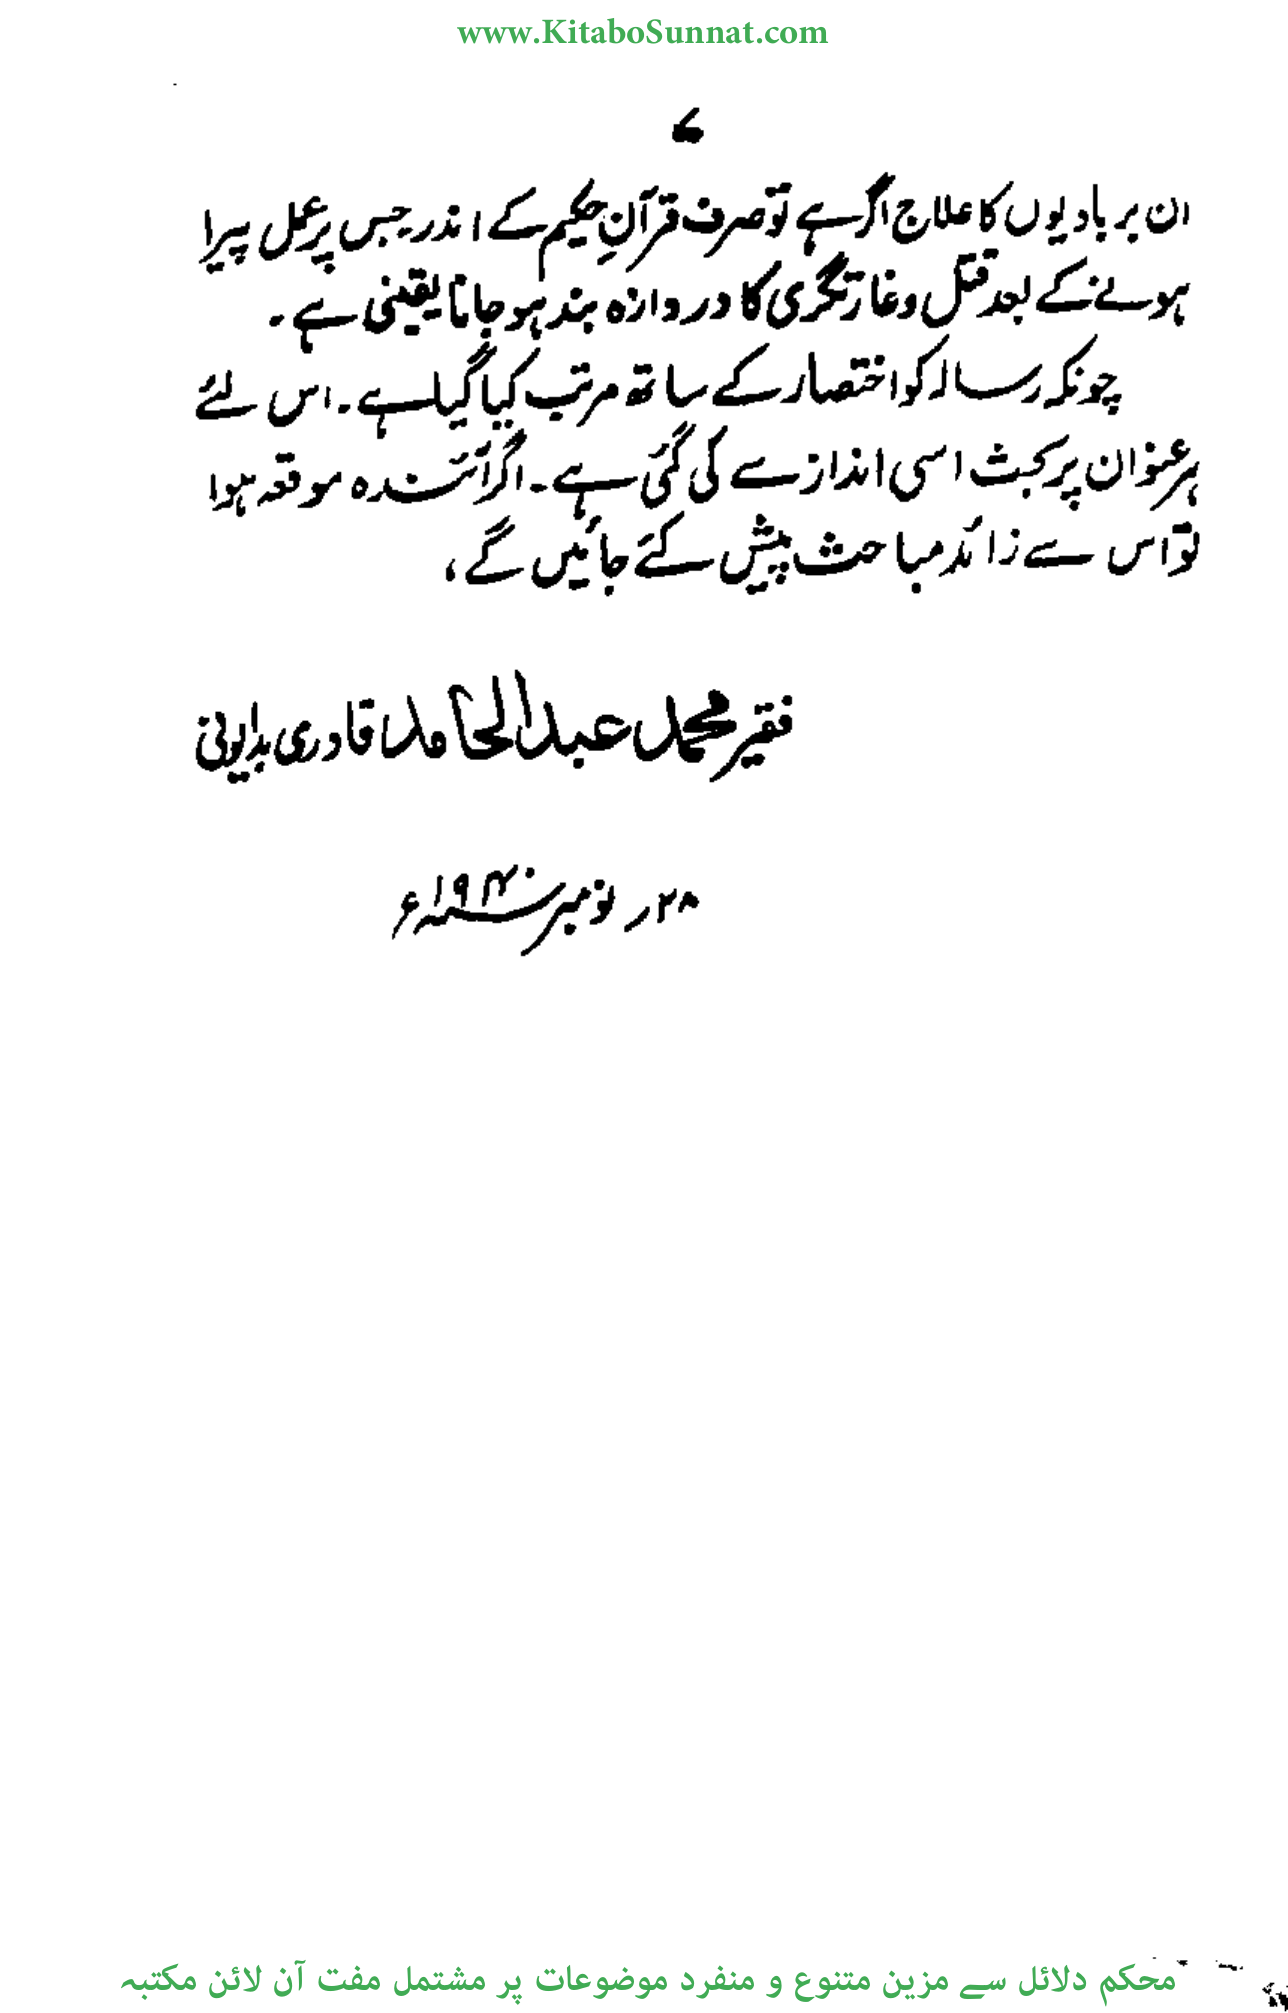 www.KitaboSunnat.com
۷
ان بربادیوں کا علاج اگر ہے تو صرف قرآنِ حکیم کے اندر جس پر عمل پیرا
ہونے کے بعد قتل و غارتگری کا دروازہ بند ہو جانا یقینی ہے۔
چونکہ رسالہ کو اختصار کے ساتھ مرتب کیا گیا ہے۔ اس لئے
ہر عنوان پر بحث اسی انداز سے کی گئی ہے۔ اگر آئندہ موقعہ ہوا
تو اس سے زائد مباحث پیش کئے جائیں گے،
فقیر محمد عبدالحامد قادری بدایونی
۲۸ر نومبر ۱۹۴۰ء
محکم دلائل سے مزین متنوع و منفرد موضوعات پر مشتمل مفت آن لائن مکتبہ